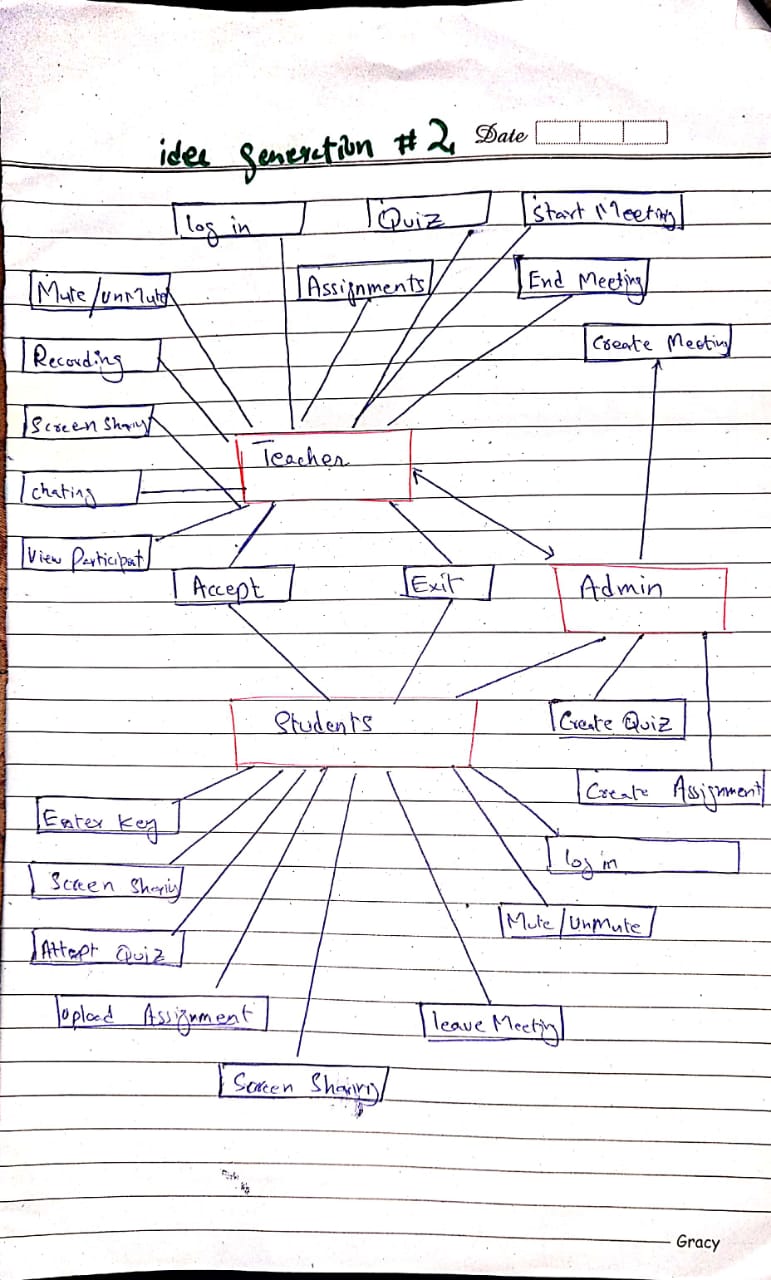 idea generation # 2
Date
log in
Quiz
Start Meeting
Mute/UnMute
Assignments
End Meeting
Recording
Create Meeting
Screen Sharing
Teacher
Chating
View Participat
Accept
Exit
Admin
Students
Create Quiz
Create Assignment
Enter Key
log in
Screen Sharing
Mute/UnMute
Attept Quiz
Upload Assignment
leave Meeting
Screen Sharing
Gracy